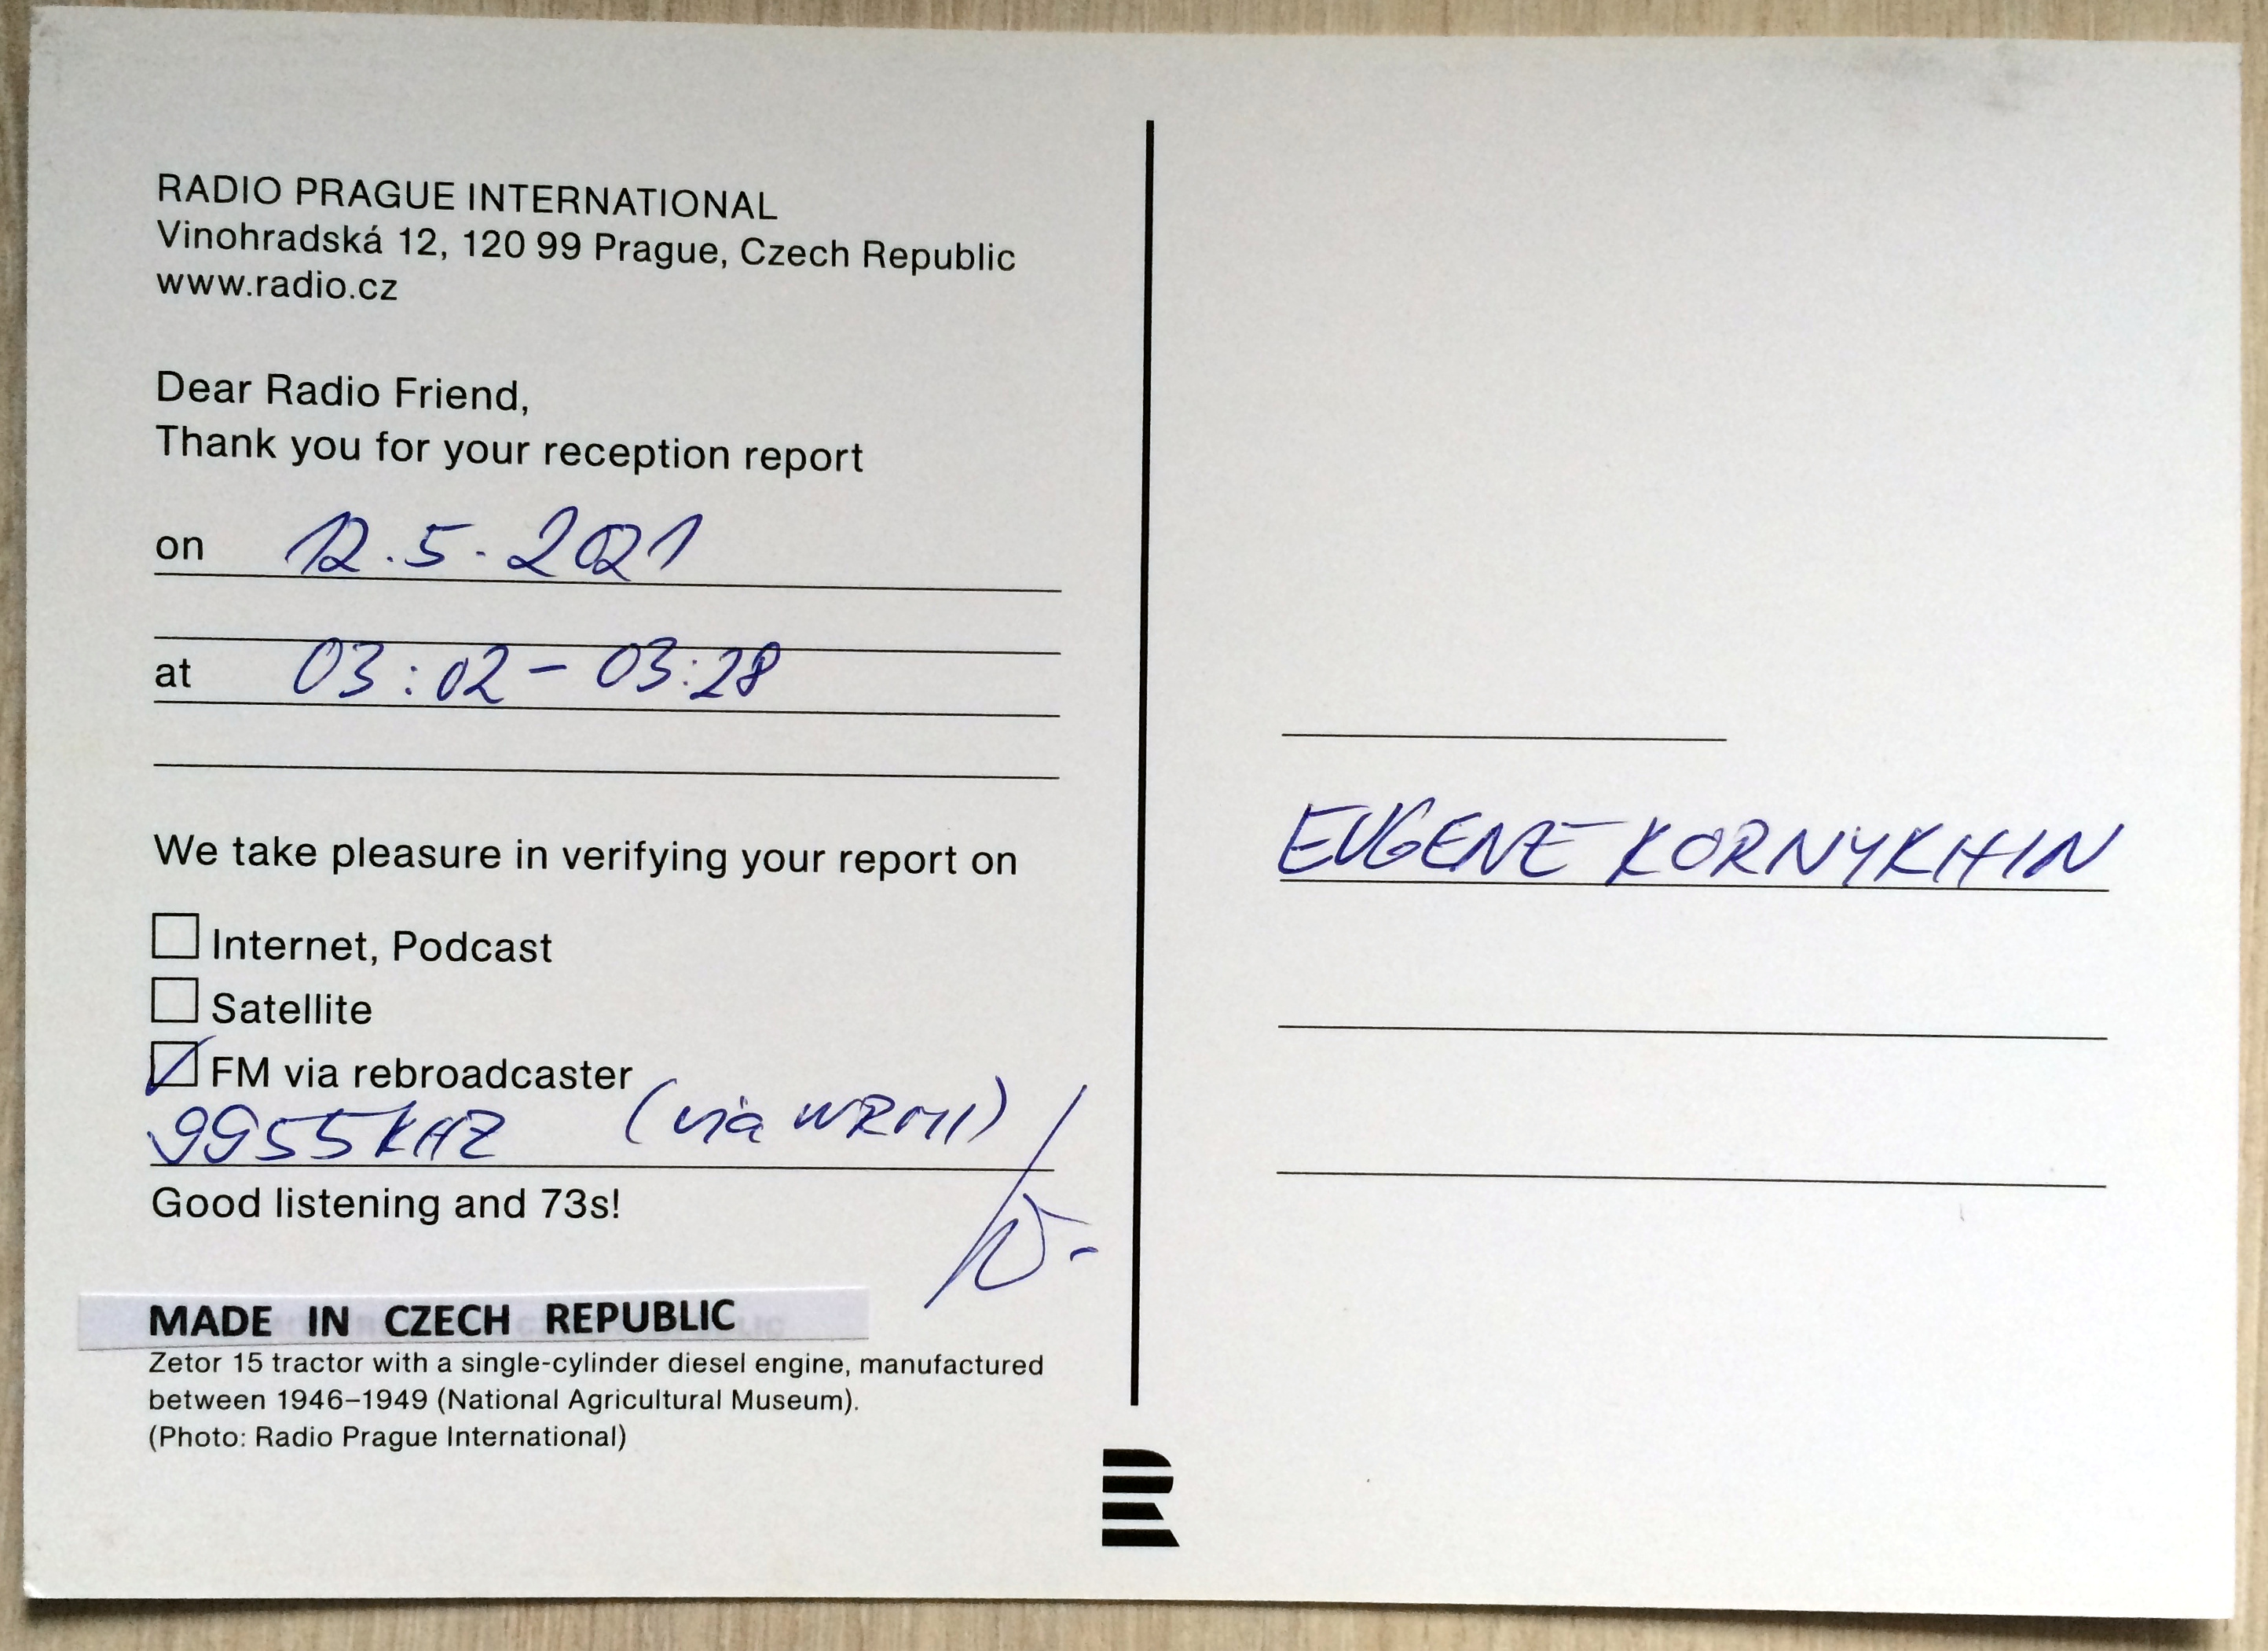 RADIO PRAGUE INTERNATIONAL
Vinohradská 12, 120 99 Prague, Czech Republic
www.radio.cz
Dear Radio Friend,
Thank you for your reception report
on 12.5.2021
at 03:02-03:28
We take pleasure in verifying your report on
Internet, Podcast
Satellite
FM via rebroadcaster
9955 KHZ (via WRMI)
Good listening and 73s!
MADE IN CZECH REPUBLIC
Zetor 15 tractor with a single-cylinder diesel engine, manufactured
between 1946–1949 (National Agricultural Museum).
(Photo: Radio Prague International)
EUGENE KORNYKHIN